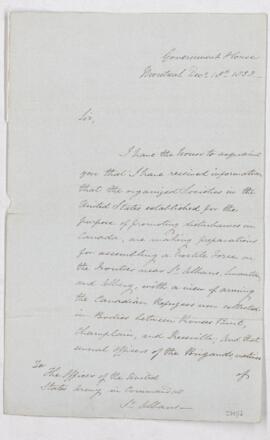 Government House
Montreal Decr 18th 1838
Sir,
I have the honor to acquaint
you that I have received information
that the organized Societies in the
United States established for the
purpose of promoting disturbances in
Canada, are making preparations
for assembling a Force on
the Frontier near St Albans, Swanton,
and Alburg, with a view of arming
the Canadian Refugees now collected
in Bodies between Rouses Point,
Champlain, and and that
several officers of the Brigands
of
To
The Officer of the United
States Army in Command
St Albans